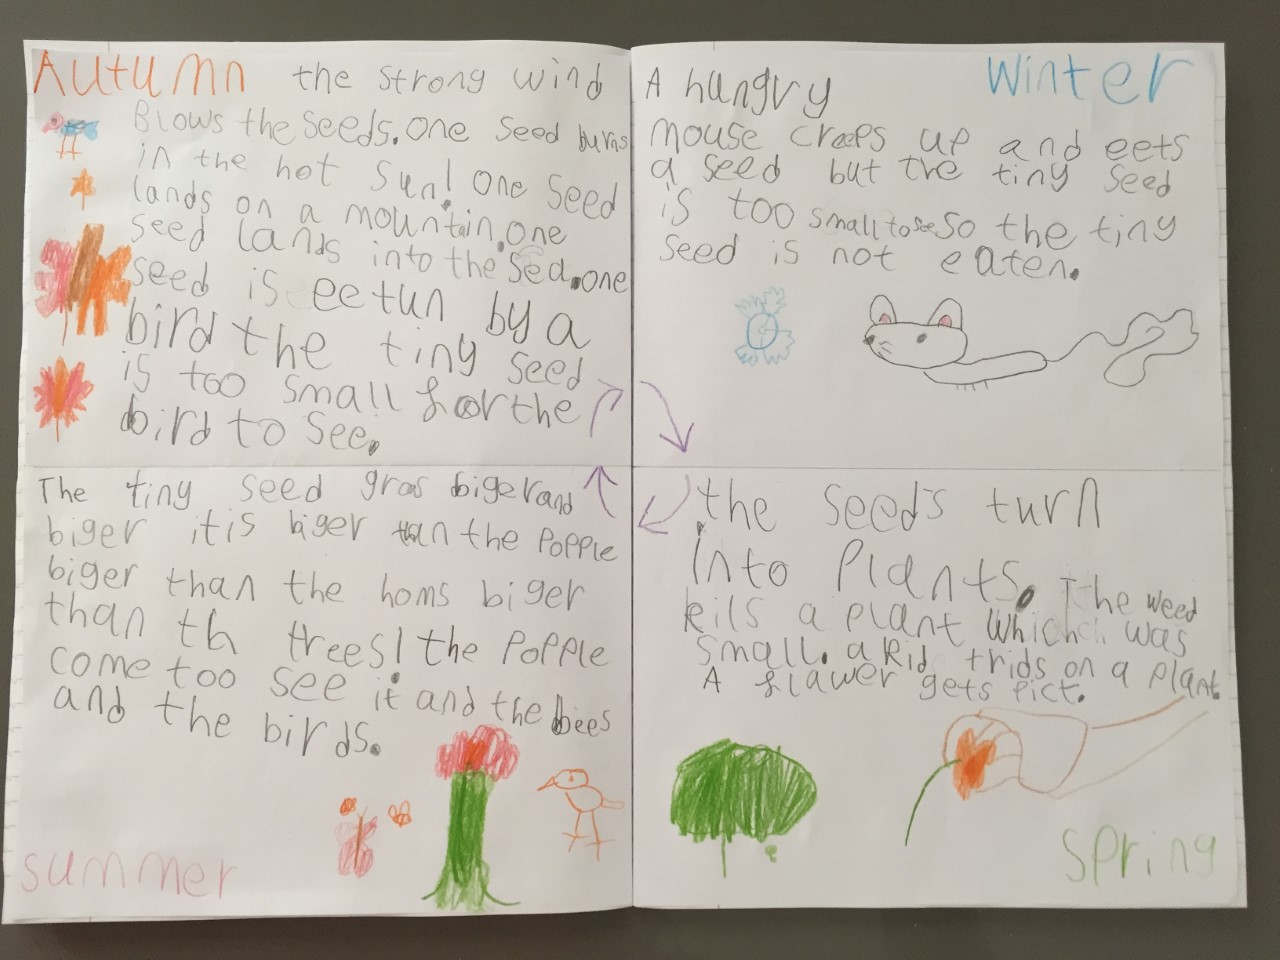 Autumn the strong wind
Blows the seeds. one seed burns
in the hot sun! one seed
lands on a mountain. one
seed lands into the sea. one
seed is eetun by a
bird the tiny seed
is too small for the
bird to see.
Winter
A hungry
mouse creeps up and eets
a seed but the tiny seed
is too small to see so the tiny
seed is not eaten.
the seeds turn
into plants. The weed
kils a plant which was
small. a kid trids on a plant.
A flawer gets pict.
Spring
The tiny seed gros biger and
biger it is biger than the popple
biger than the homs biger
than th trees! the popple
come too see it and the bees
and the birds.
summer